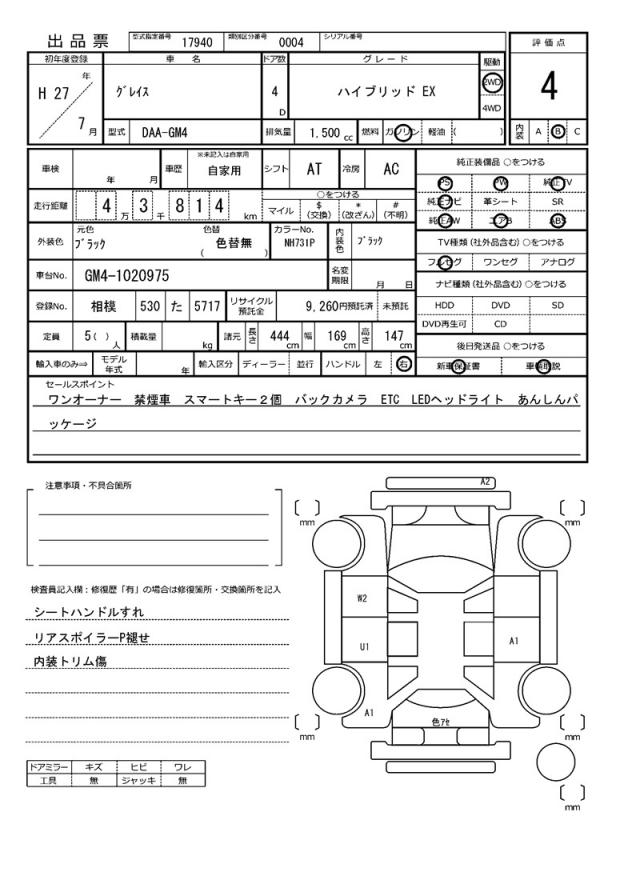 出品票 型式指定番号 17940 類別区分番号 0004 シリアル番号
評価点
4
初年度登録 車名 ドア数 グレード 駆動
H 27 年 7 月 グレイス 4 D ハイブリッド EX 2WD 4WD
型式 DAA-GM4 排気量 1.500 cc 燃料 ガソリン 軽油 ( )
内装 A B C
車検 年 月 車歴 ※未記入は自家用 自家用 シフト AT 冷房 AC
純正装備品 ○をつける
PS PW 純正TV
純正ナビ 革シート SR
純正AW エアB ABS
走行距離 4 万 3 千 8 1 4 km
○をつける
マイル $ (交換) * (改ざん) # (不明)
外装色 元色 ブラック 色替 色替無 ( ) カラーNo. NH731P 内装色 ブラック
TV種類 (社外品含む) ○をつける
フルセグ ワンセグ アナログ
車台No. GM4-1020975 名変期限 月 日
ナビ種類 (社外品含む) ○をつける
HDD DVD SD
DVD再生可 CD
登録No. 相模 530 た 5717 リサイクル預託金 9,260円預託済 未預託
定員 5( ) 人 積載量 kg 諸元 長さ 444 cm 幅 169 cm 高さ 147 cm
後日発送品 ○をつける
新車保証書 車輌取説
輸入車のみ⇒ モデル年式 年 輸入区分 ディーラー 並行 ハンドル 左 右
セールスポイント
ワンオーナー 禁煙車 スマートキー2個 バックカメラ ETC LEDヘッドライト あんしんパ
ッケージ
注意事項・不具合箇所
検査員記入欄:修復歴「有」の場合は修復箇所・交換箇所を記入
シートハンドルすれ
リアスポイラーP褪せ
内装トリム傷
ドアミラー キズ ヒビ ワレ
工具 無 ジャッキ 無
A2
mm
mm
W2
U1
A1
A1
色アセ
mm
mm
mm